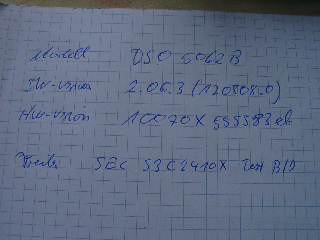 Modell DSO 5062B
SW-version 2.06.3 (120808.0)
HW-version 10070X555583
Treiber SEC S3C2410X Test B/D